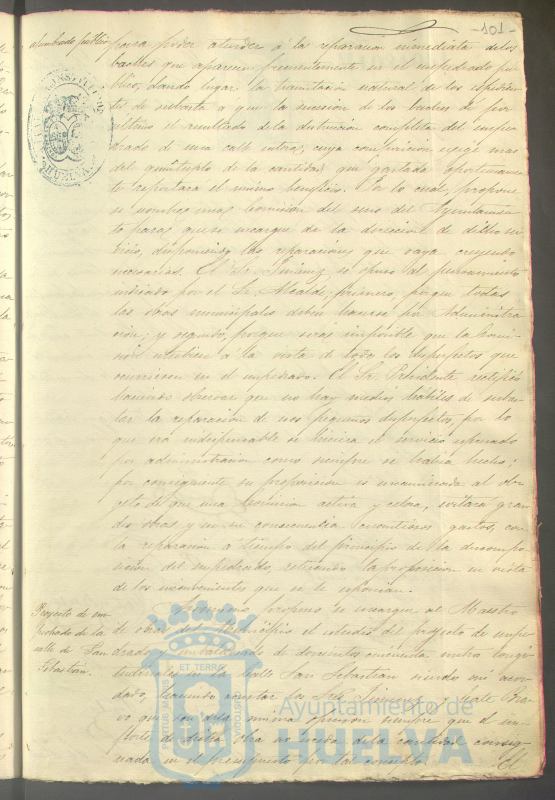 -101-
alumbrado público
para poder atender á la reparacion inmediata de los
baches que aparecen frecuentemente en el empedrado pú-
blico, dando lugar la tramitacion natural de los espedien-
tes de subasta a que la sucesion de los baches dé por
último el resultado de la destruccion completa del empe-
drado de una calle entera, cuya composicion exige mas
del quintuplo de la cantidad que gastada oportunamen-
te reportara el mismo beneficio. Por lo cual, propone
se nombre una Comision del seno del Ayuntamien-
to para que se encargue de la direccion de dicho ser-
vicio, disponiendo las reparaciones que vaya creyendo
necesarias. El Sr. Jimenez se opuso al pensamiento
indicado por el Sr. Alcalde; primero, porque todas
las obras municipales deben hacerse por Administra-
cion; y segundo, porque seria imposible que la Comi-
sion estubiese á la vista de todos los desperfectos que
ocurriesen en el empedrado. El Sr. Presidente rectificó
haciendo observar que no hay medios hábiles de subas-
tar la reparacion de esos pequeños desperfectos, por lo
que era indispensable se hiciera el servicio espresado
por administracion como siempre se habia hecho;
por consiguiente su proposicion es encaminada al ob-
jeto de que una Comision activa y celosa, evitara gran-
des obras y en su consecuencia cuantiosos gastos, con
la reparacion á tiempo del principio de la descompo-
sicion del empedrado, retirando la proposicion en vista
de los inconvenientes que se le esponian.
Proyecto de em-
pedrado de la
calle de San
Sebastian.
propuso se encargue al Maestro
de obras del Municipio el estudio del proyecto de empe-
drado y embaldosado de doscientos cincuenta metros longi-
tudinales en la calle San Sebastian siendo asi acor-
dado, haciendo constar los Sres. Jimenez y
que son de la misma opinion siempre que el im-
porte de dicha obra no esceda de la cantidad consig-
nada en el presupuesto por tal concepto.
El
HUELVA
PORTUS MARIS ET TERRAE CUSTODIA
Ayuntamiento de
HUELVA